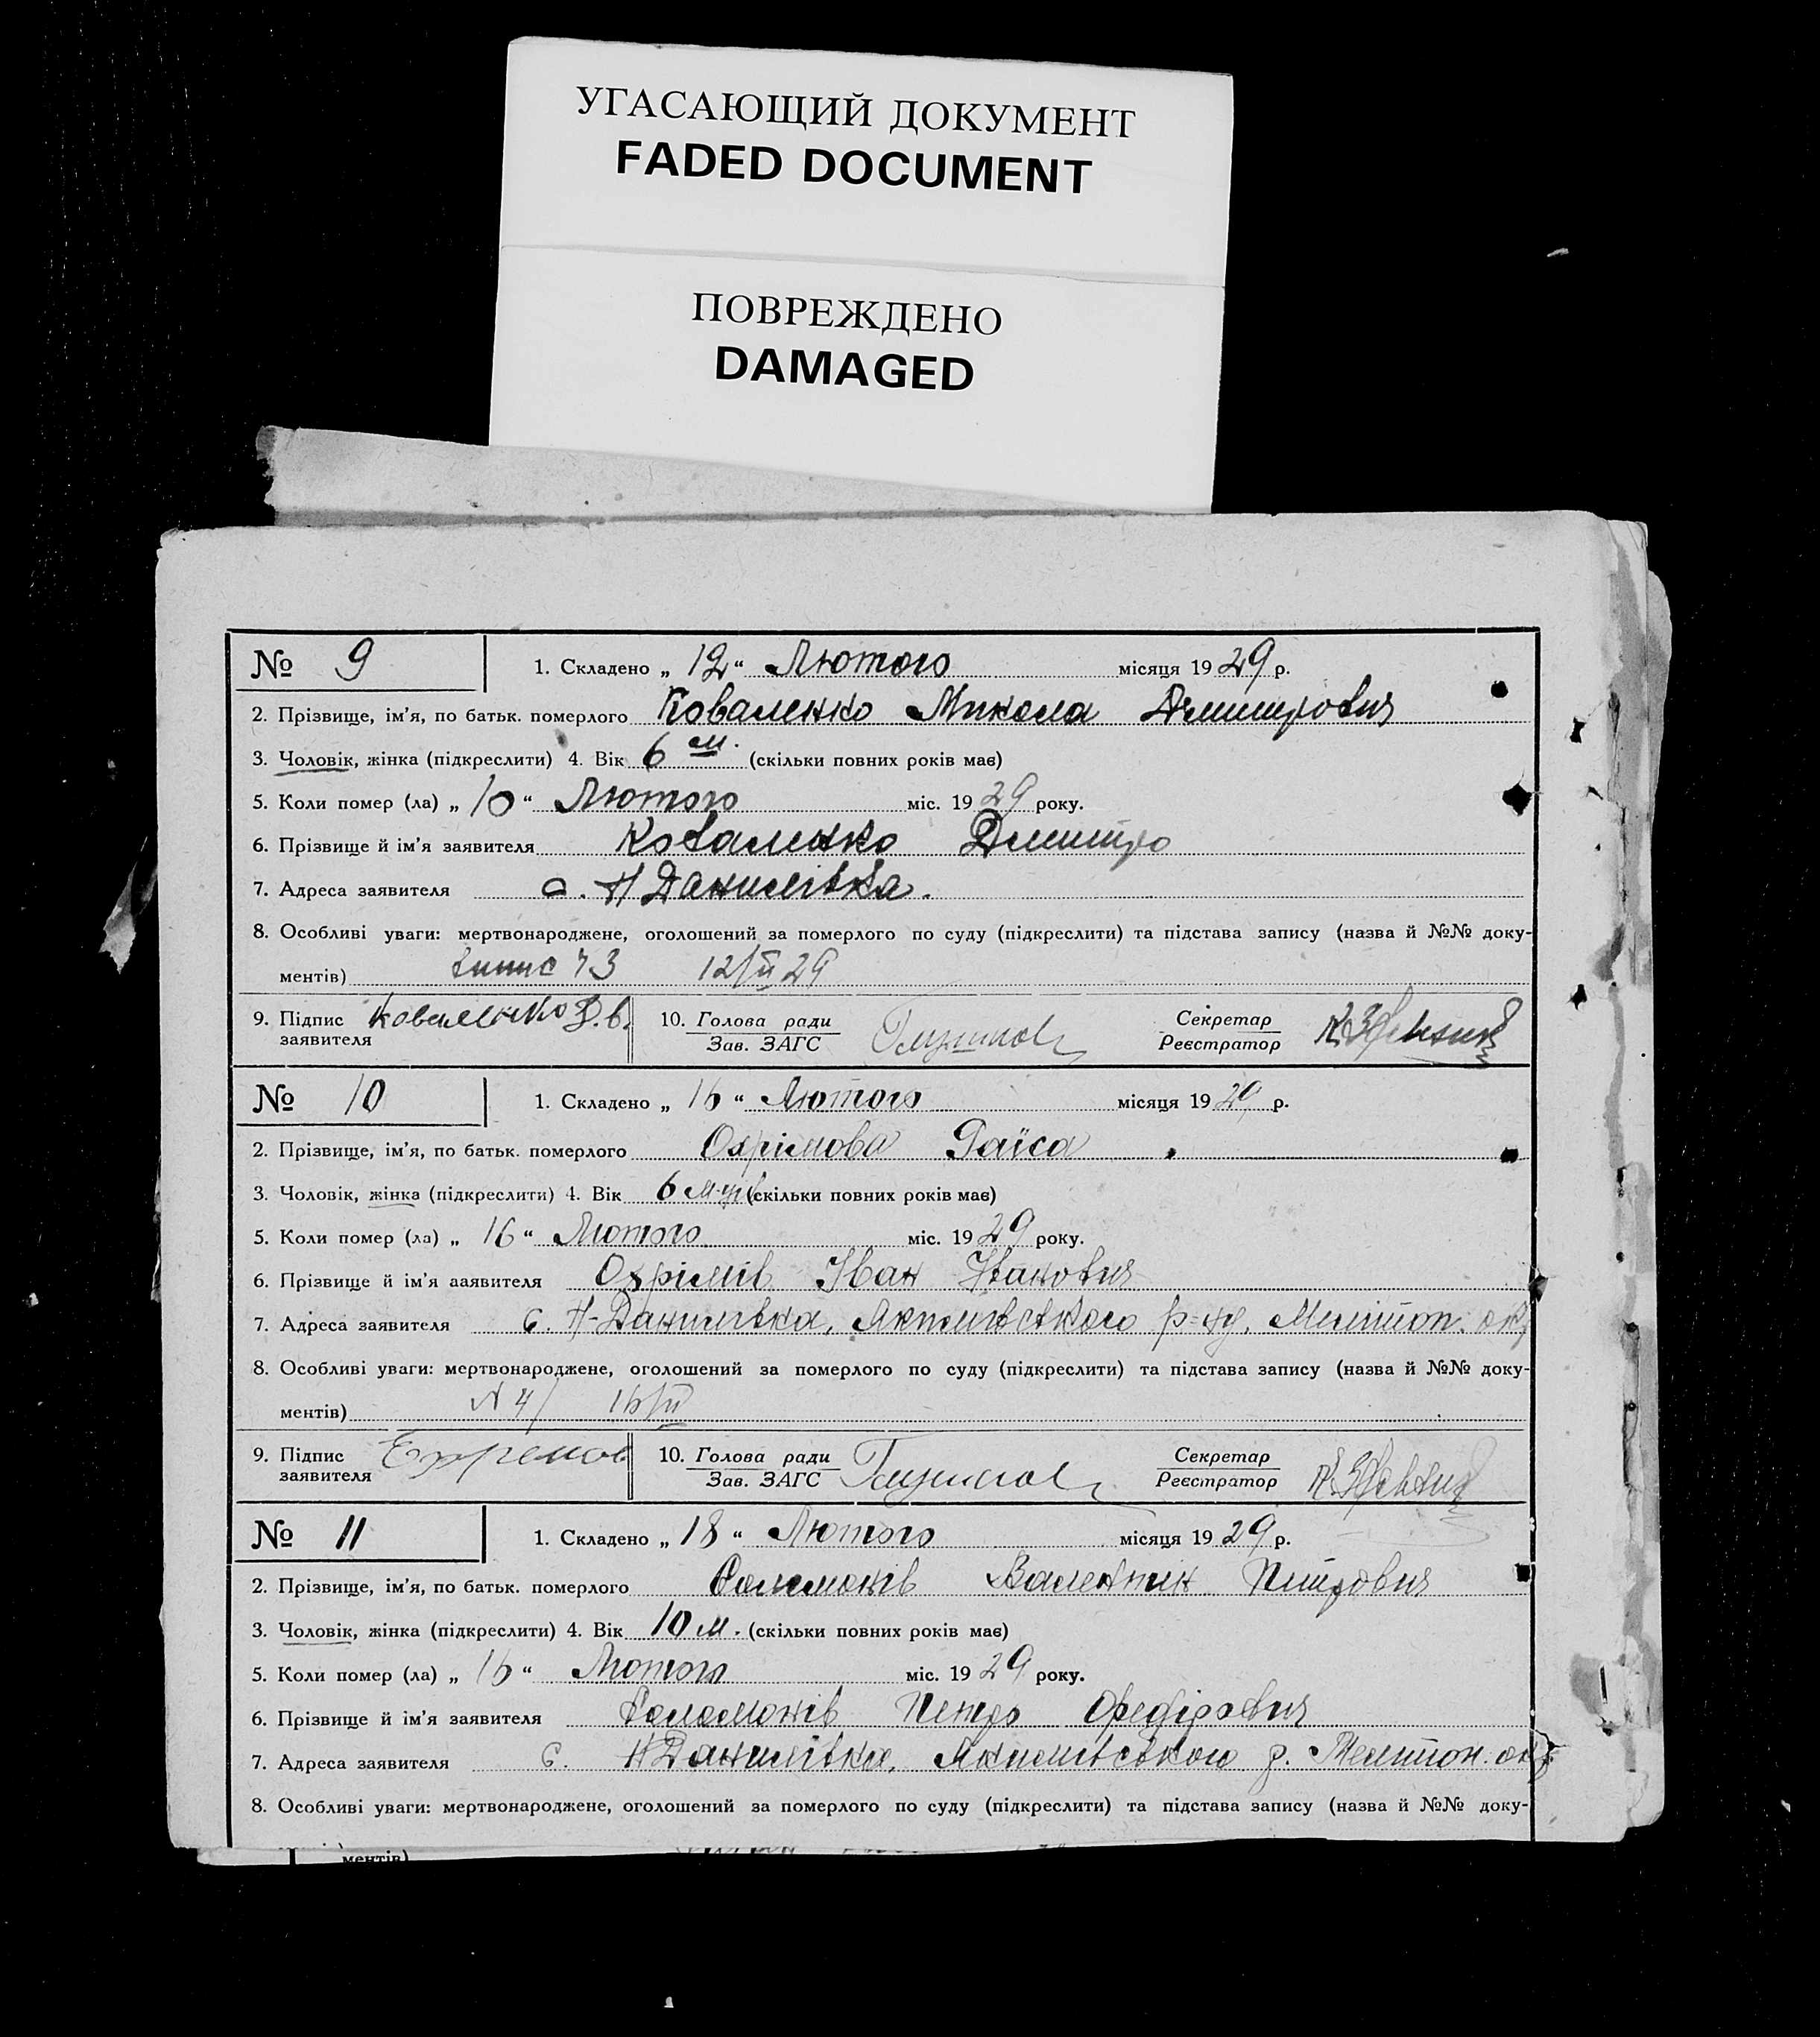 УГАСАЮЩИЙ ДОКУМЕНТ
FADED DOCUMENT
ПОВРЕЖДЕНО
DAMAGED
№ 9 1. Складено „ 12 “ Лютого місяця 19 29 р.
2. Прізвище, ім'я, по батьк. померлого Коваленко Микола Дмитрович
3. Чоловік, жінка (підкреслити) 4. Вік 6 м. (скільки повних років має)
5. Коли помер (ла) „ 10 “ Лютого міс. 19 29 року.
6. Прізвище й ім'я заявителя Коваленко Дмитро
7. Адреса заявителя с. Н Данилівка.
8. Особливі уваги: мертвонароджене, оголошений за померлого по суду (підкреслити) та підстава запису (назва й №№ доку-
ментів) 12/II 29
9. Підпис заявителя Коваленко 10. Голова ради Зав. ЗАГС Секретар Реєстратор
№ 10 1. Складено „ 16 “ Лютого місяця 19 29 р.
2. Прізвище, ім'я, по батьк. померлого Охрімова Раїса
3. Чоловік, жінка (підкреслити) 4. Вік 6 (скільки повних років має)
5. Коли помер (ла) „ 16 “ Лютого міс. 19 29 року.
6. Прізвище й ім'я ааявителя Охрімів Іван Іванович
7. Адреса заявителя с. Н-Данилівка, Якимівського р-ну, Меліт​оп. окр
8. Особливі уваги: мертвонароджене, оголошений за померлого по суду (підкреслити) та підстава запису (назва й №№ доку-
ментів) N 4/ 16/II
9. Підпис заявителя Ехремов 10. Голова ради Зав. ЗАГС Секретар Реєстратор
№ 11 1. Складено „ 18 “ Лютого місяця 19 29 р.
2. Прізвище, ім'я, по батьк. померлого Соломонів Валентин Питрович
3. Чоловік, жінка (підкреслити) 4. Вік 10 м. (скільки повних років має)
5. Коли помер (ла) „ 16 “ Лютого міс. 19 29 року.
6. Прізвище й ім'я заявителя Соломонів Петро Офедірович
7. Адреса заявителя с. Н Данилівка, Якимівського р. Мелітоп. окр
8. Особливі уваги: мертвонароджене, оголошений за померлого по суду (підкреслити) та підстава запису (назва й №№ доку-
ментів)